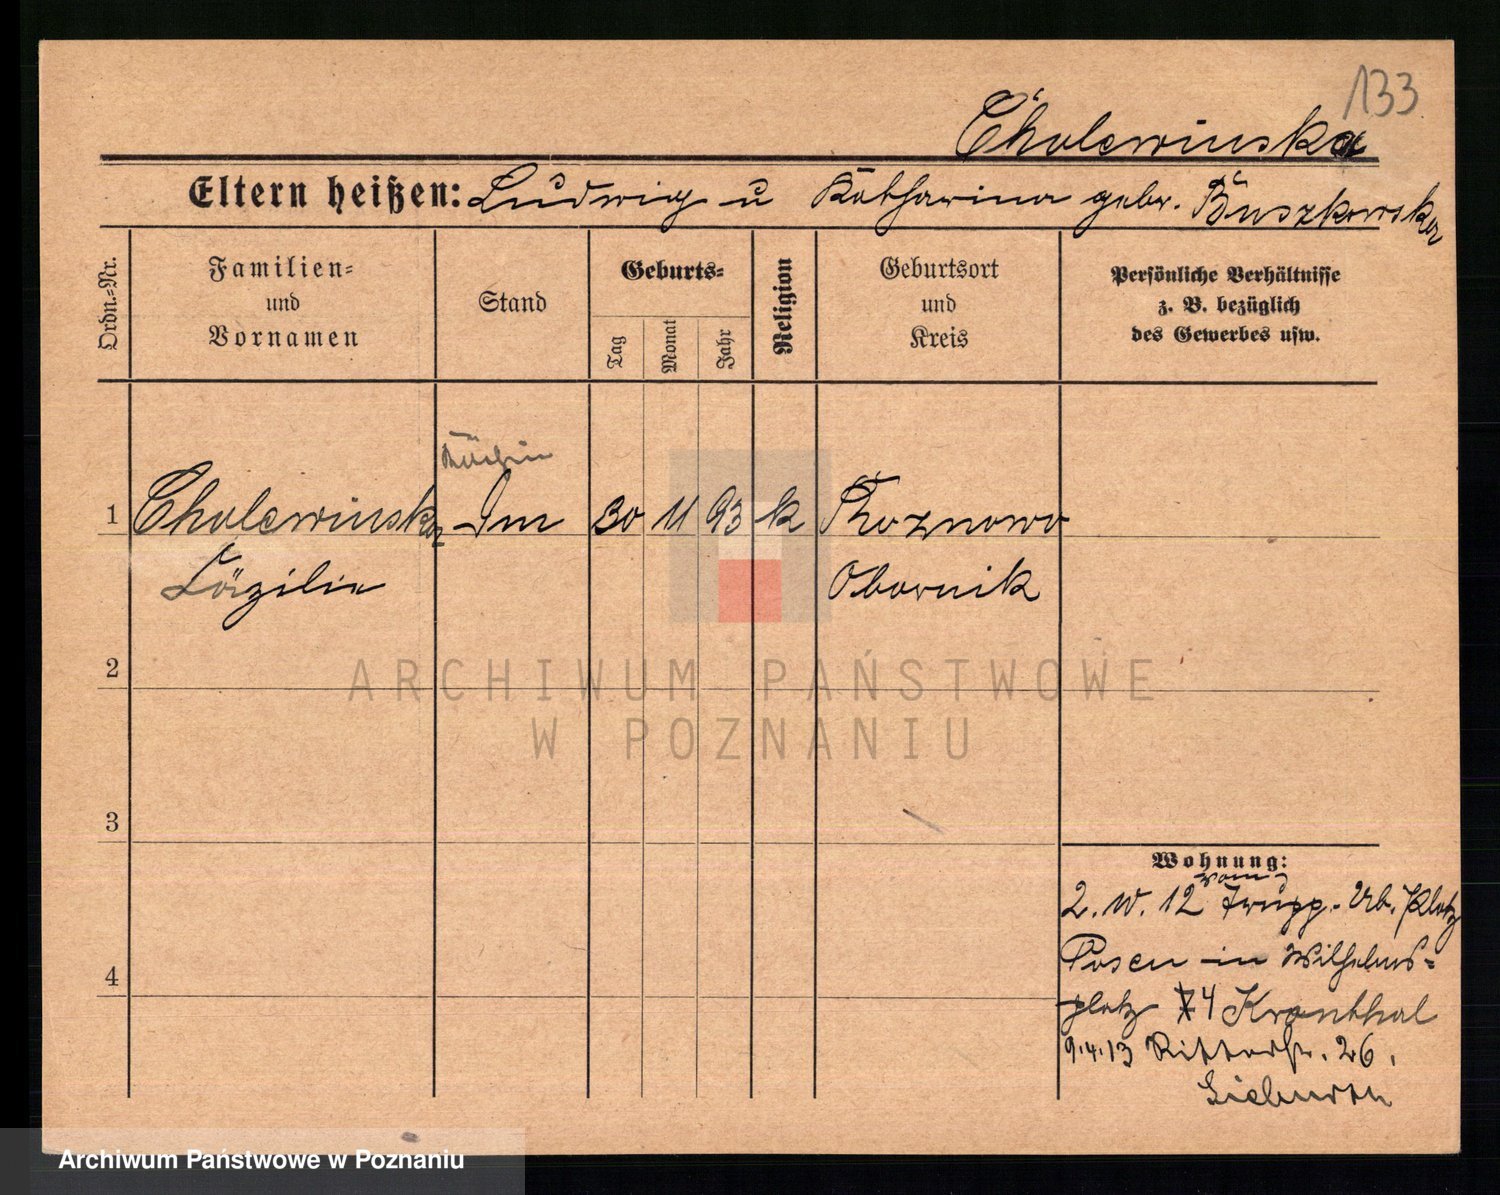 133
Cholewinska
Eltern heißen: Ludwig u Katharina gebr. Buszkowska
Ordn.-Nr.
Familien-
und
Vornamen
Stand
Geburts-
Tag
Monat
Jahr
Religion
Geburtsort
und
Kreis
Persönliche Verhältnisse
z. B. bezüglich
des Gewerbes usw.
Köchin
1 Cholewinska 30 11 93 k Roznowo
Cäzilie Obornik
2
3
4
Wohnung:
vom
2. IV. 12 Trupp. Üb. Platz
Posen in Wilhelms-
platz 4 Kronthal
9.4.13 Ritterstr. 26.
ARCHIWUM PAŃSTWOWE
W POZNANIU
Archiwum Państwowe w Poznaniu